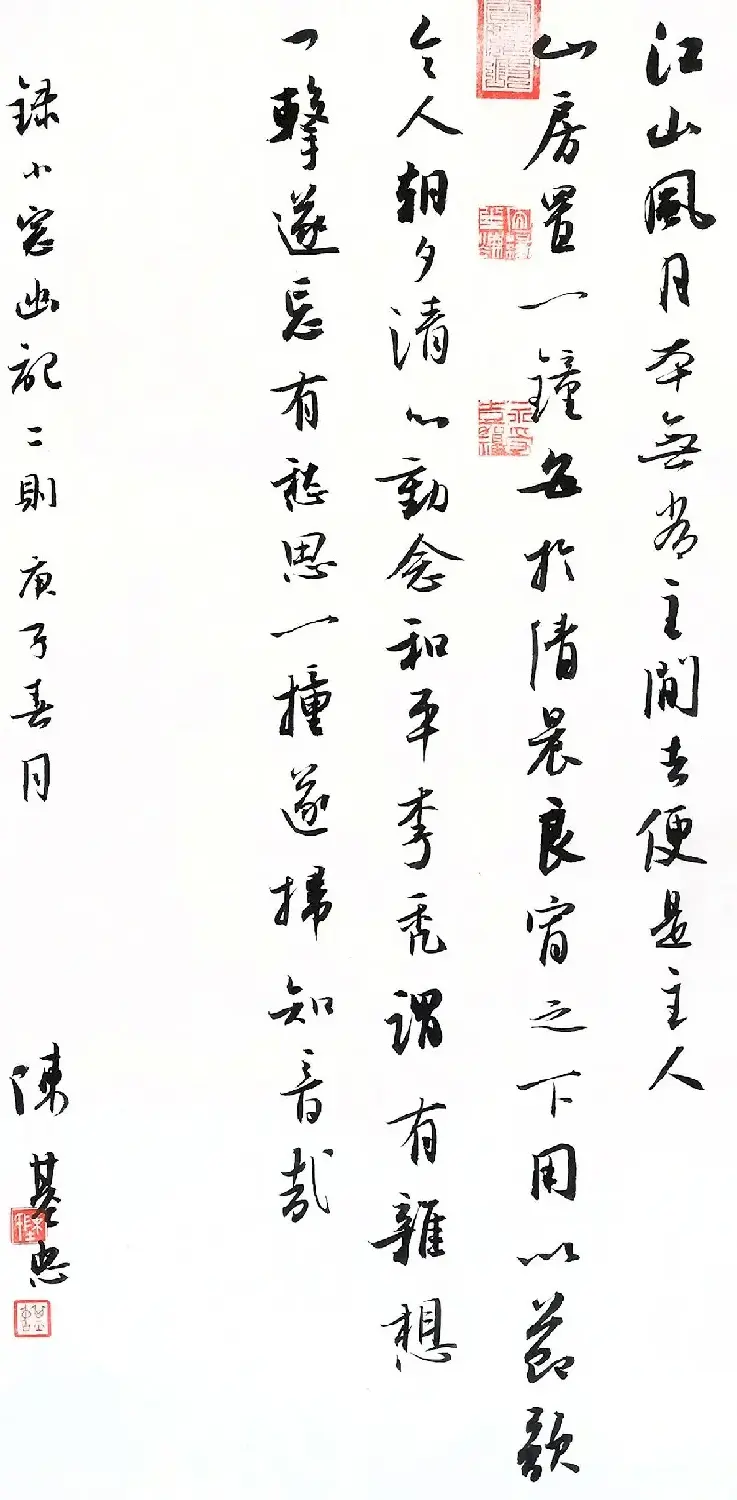 江山風月本無常主閒者便是主人
山房置一鐘每於清晨良宵之下用以節歌
令人朝夕清心動念和平李禿謂有雜想
一擊遂忘有愁思一撞遂掃知音哉
錄小窓幽記二則庚子春月
陳基忠